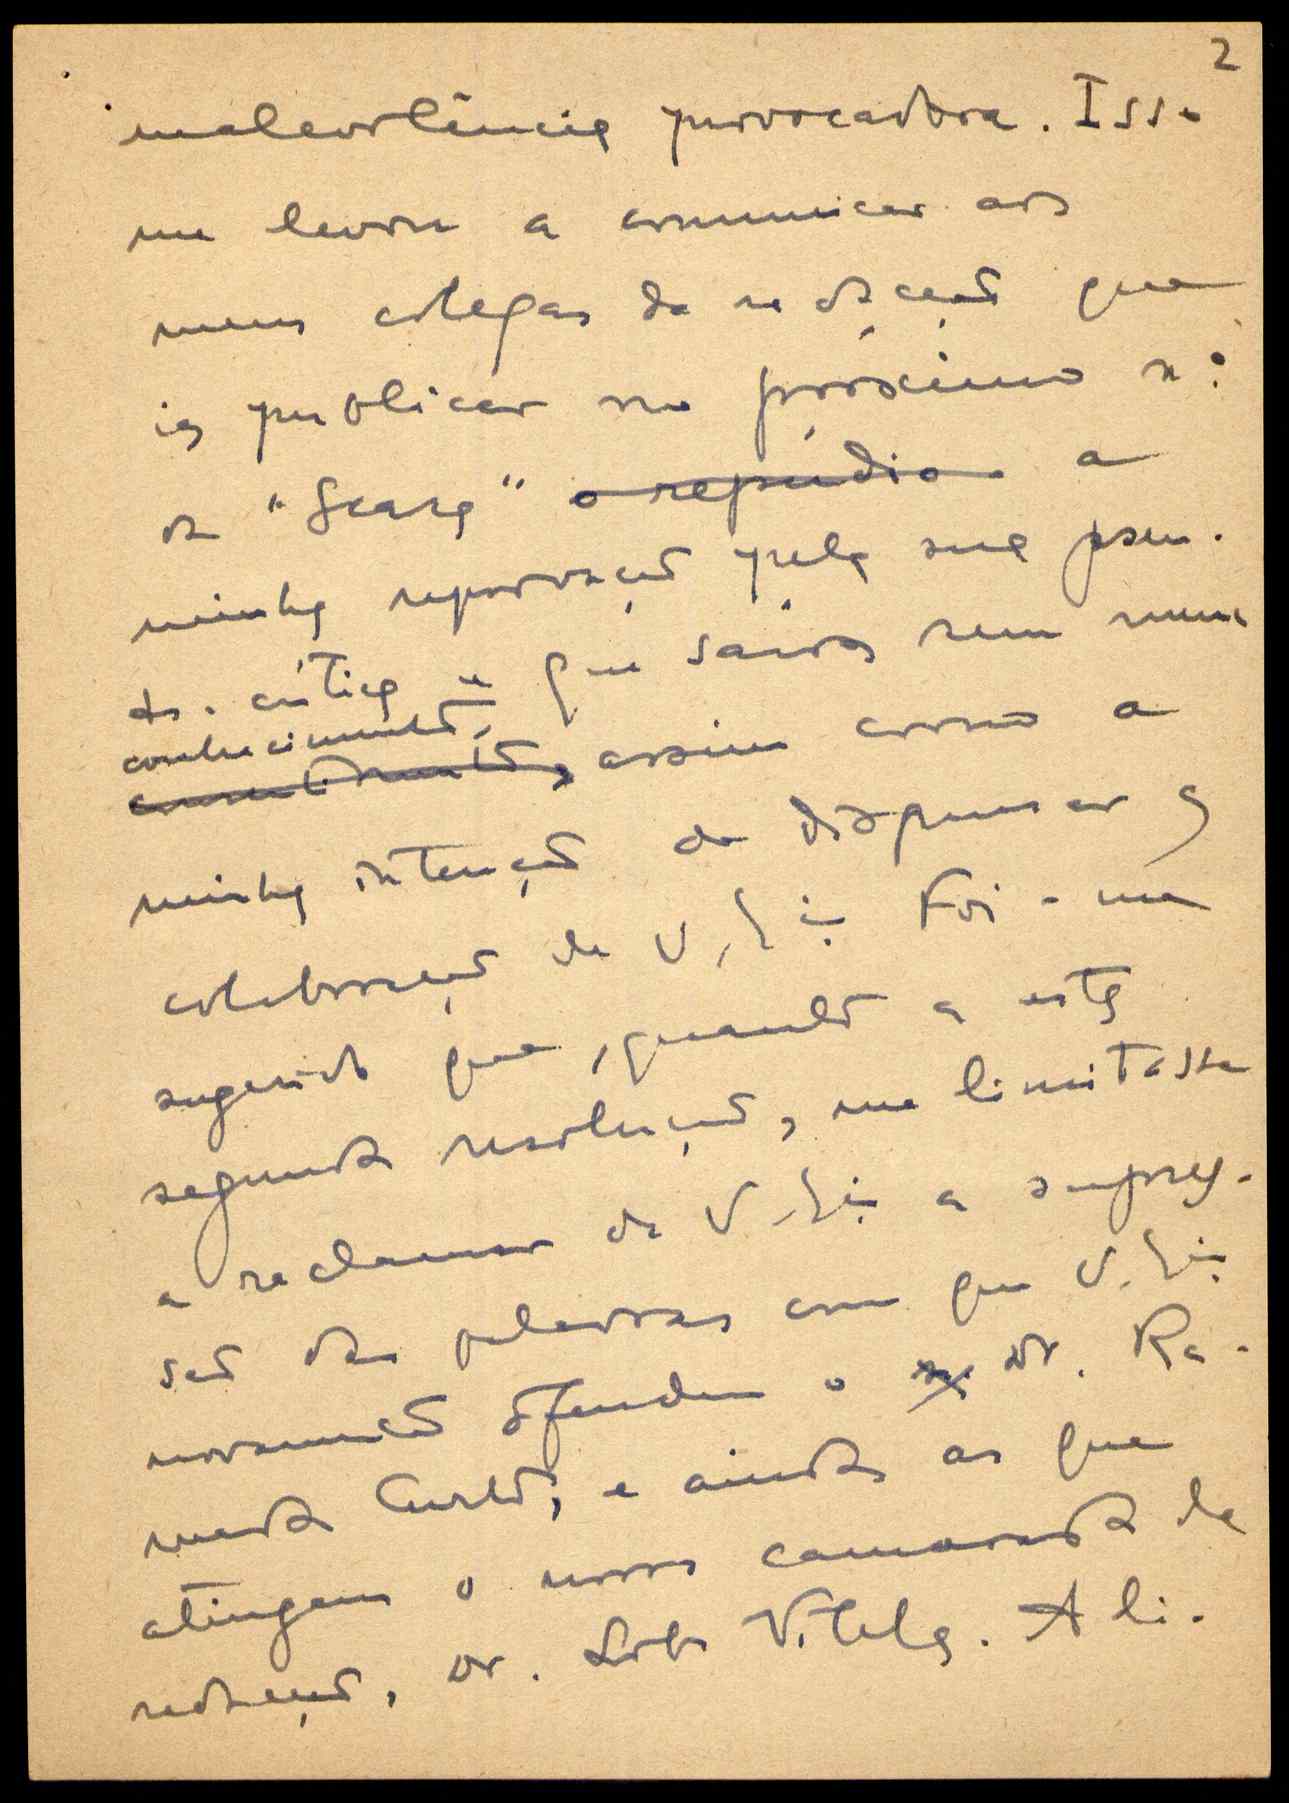 2
malevolência provocadora. Isso
me levou a comunicar aos
meus colegas da redacção que
ia publicar no próximo n.º
da "Seara" o repúdio a
minha reprovação pela sua pseu-
do-crítica — que saíra sem meu
conhecimento,
assim como a
minha intenção de dispensar a
colaboração de V. Ex.ª. Foi-me
sugerido que, quanto a esta
segunda resolução, me limitasse
a reclamar de V. Ex.ª a supres-
são das palavras com que V. Ex.ª
novamente ofendeu o Dr. Ra-
mada Curto, e ainda as que
atingem o nosso camarada de
redacção, Dr. Lobo Vilela. A li-